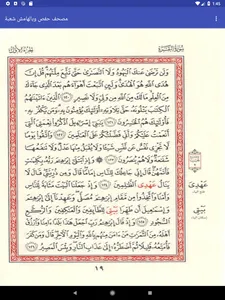 1:45
مصحف حفص وبالهامش شعبة
سُورَةُ الْبَقَرَةِ الجُزْءُ الْأَوَّلُ
وَلَن تَرْضَىٰ عَنكَ ٱلْيَهُودُ وَلَا ٱلنَّصَٰرَىٰ حَتَّىٰ تَتَّبِعَ مِلَّتَهُمْ قُلْ إِنَّ
هُدَى ٱللَّهِ هُوَ ٱلْهُدَىٰ وَلَئِنِ ٱتَّبَعْتَ أَهْوَآءَهُم بَعْدَ ٱلَّذِى جَآءَكَ
مِنَ ٱلْعِلْمِ مَا لَكَ مِنَ ٱللَّهِ مِن وَلِىٍّ وَلَا نَصِيرٍ ١٢٠ ٱلَّذِينَ ءَاتَيْنَٰهُمُ
ٱلْكِتَٰبَ يَتْلُونَهُۥ حَقَّ تِلَاوَتِهِۦٓ أُو۟لَٰٓئِكَ يُؤْمِنُونَ بِهِۦ وَمَن يَكْفُرْ بِهِۦ
فَأُو۟لَٰٓئِكَ هُمُ ٱلْخَٰسِرُونَ ١٢١ يَٰبَنِىٓ إِسْرَٰٓءِيلَ ٱذْكُرُوا۟ نِعْمَتِىَ ٱلَّتِىٓ
أَنْعَمْتُ عَلَيْكُمْ وَأَنِّى فَضَّلْتُكُمْ عَلَى ٱلْعَٰلَمِينَ ١٢٢ وَٱتَّقُوا۟ يَوْمًا لَّا
تَجْزِى نَفْسٌ عَن نَّفْسٍ شَيْـًٔا وَلَا يُقْبَلُ مِنْهَا عَدْلٌ وَلَا تَنفَعُهَا
شَفَٰعَةٌ وَلَا هُمْ يُنصَرُونَ ١٢٣ وَإِذِ ٱبْتَلَىٰٓ إِبْرَٰهِۦمَ رَبُّهُۥ بِكَلِمَٰتٍ
فَأَتَمَّهُنَّ قَالَ إِنِّى جَاعِلُكَ لِلنَّاسِ إِمَامًا قَالَ وَمِن ذُرِّيَّتِى قَالَ لَا
يَنَالُ عَهْدِى ٱلظَّٰلِمِينَ ١٢٤ وَإِذْ جَعَلْنَا ٱلْبَيْتَ مَثَابَةً لِّلنَّاسِ
وَأَمْنًا وَٱتَّخِذُوا۟ مِن مَّقَامِ إِبْرَٰهِۦمَ مُصَلًّى وَعَهِدْنَآ إِلَىٰٓ إِبْرَٰهِۦمَ
وَإِسْمَٰعِيلَ أَن طَهِّرَا بَيْتِىَ لِلطَّآئِفِينَ وَٱلْعَٰكِفِينَ وَٱلرُّكَّعِ
ٱلسُّجُودِ ١٢٥ وَإِذْ قَالَ إِبْرَٰهِۦمُ رَبِّ ٱجْعَلْ هَٰذَا بَلَدًا ءَامِنًا وَٱرْزُقْ
أَهْلَهُۥ مِنَ ٱلثَّمَرَٰتِ مَنْ ءَامَنَ مِنْهُم بِٱللَّهِ وَٱلْيَوْمِ ٱلْـَٔاخِرِ قَالَ وَمَن كَفَرَ
فَأُمَتِّعُهُۥ قَلِيلًا ثُمَّ أَضْطَرُّهُۥٓ إِلَىٰ عَذَابِ ٱلنَّارِ وَبِئْسَ ٱلْمَصِيرُ ١٢٦
عَهْدِىَ
بَيْتِى
١٩